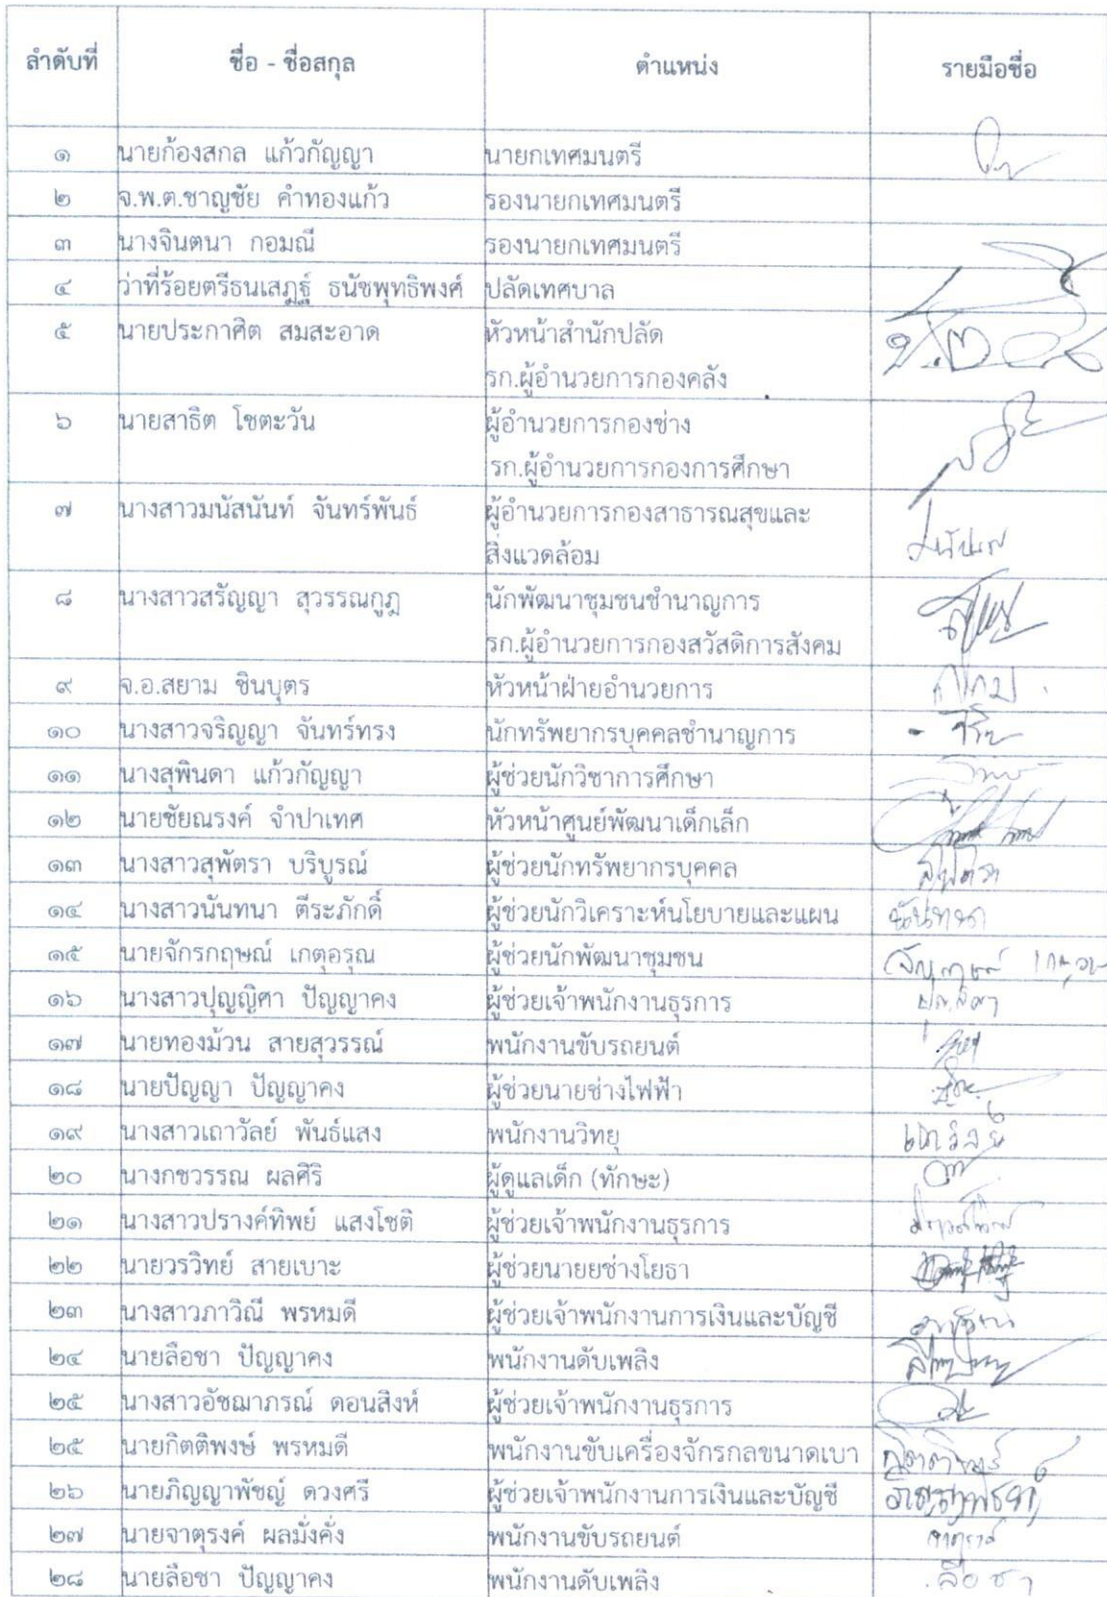 ลำดับที่ ชื่อ - ชื่อสกุล ตำแหน่ง รายมือชื่อ
๑ นายก้องสกล แก้วกัญญา นายกเทศมนตรี
๒ จ.พ.ต.ชาญชัย คำทองแก้ว รองนายกเทศมนตรี
๓ นางจินตนา กอมณี รองนายกเทศมนตรี
๔ ว่าที่ร้อยตรีธนเสฏฐ์ ธนัชพุทธิพงศ์ ปลัดเทศบาล
๕ นายประกาศิต สมสะอาด หัวหน้าสำนักปลัด
รก.ผู้อำนวยการกองคลัง
๖ นายสาธิต โชตะวัน ผู้อำนวยการกองช่าง
รก.ผู้อำนวยการกองการศึกษา
๗ นางสาวมนัสนันท์ จันทร์พันธ์ ผู้อำนวยการกองสาธารณสุขและ
สิ่งแวดล้อม
๘ นางสาวสรัญญา สุวรรณกูฎ นักพัฒนาชุมชนชำนาญการ
รก.ผู้อำนวยการกองสวัสดิการสังคม
๙ จ.อ.สยาม ชินบุตร หัวหน้าฝ่ายอำนวยการ
๑๐ นางสาวจริญญา จันทร์ทรง นักทรัพยากรบุคคลชำนาญการ
๑๑ นางสุพินดา แก้วกัญญา ผู้ช่วยนักวิชาการศึกษา
๑๒ นายชัยณรงค์ จำปาเทศ หัวหน้าศูนย์พัฒนาเด็กเล็ก
๑๓ นางสาวสุพัตรา บริบูรณ์ ผู้ช่วยนักทรัพยากรบุคคล สุพัตรา
๑๔ นางสาวนันทนา ตีระภักดิ์ ผู้ช่วยนักวิเคราะห์นโยบายและแผน นันทนา
๑๕ นายจักรกฤษณ์ เกตุอรุณ ผู้ช่วยนักพัฒนาชุมชน
๑๖ นางสาวปุญญิศา ปัญญาคง ผู้ช่วยเจ้าพนักงานธุรการ
๑๗ นายทองม้วน สายสุวรรณ์ พนักงานขับรถยนต์
๑๘ นายปัญญา ปัญญาคง ผู้ช่วยนายช่างไฟฟ้า
๑๙ นางสาวเถาวัลย์ พันธ์แสง พนักงานวิทยุ เถาวัลย์
๒๐ นางกชวรรณ ผลศิริ ผู้ดูแลเด็ก (ทักษะ)
๒๑ นางสาวปรางค์ทิพย์ แสงโชติ ผู้ช่วยเจ้าพนักงานธุรการ
๒๒ นายวรวิทย์ สายเบาะ ผู้ช่วยนายยช่างโยธา
๒๓ นางสาวภาวิณี พรหมดี ผู้ช่วยเจ้าพนักงานการเงินและบัญชี
๒๔ นายลือชา ปัญญาคง พนักงานดับเพลิง
๒๕ นางสาวอัชฌาภรณ์ ดอนสิงห์ ผู้ช่วยเจ้าพนักงานธุรการ
๒๕ นายกิตติพงษ์ พรหมดี พนักงานขับเครื่องจักรกลขนาดเบา
๒๖ นายภิญญาพัชญ์ ดวงศรี ผู้ช่วยเจ้าพนักงานการเงินและบัญชี
๒๗ นายจาตุรงค์ ผลมั่งคั่ง พนักงานขับรถยนต์
๒๘ นายลือชา ปัญญาคง พนักงานดับเพลิง ลือชา